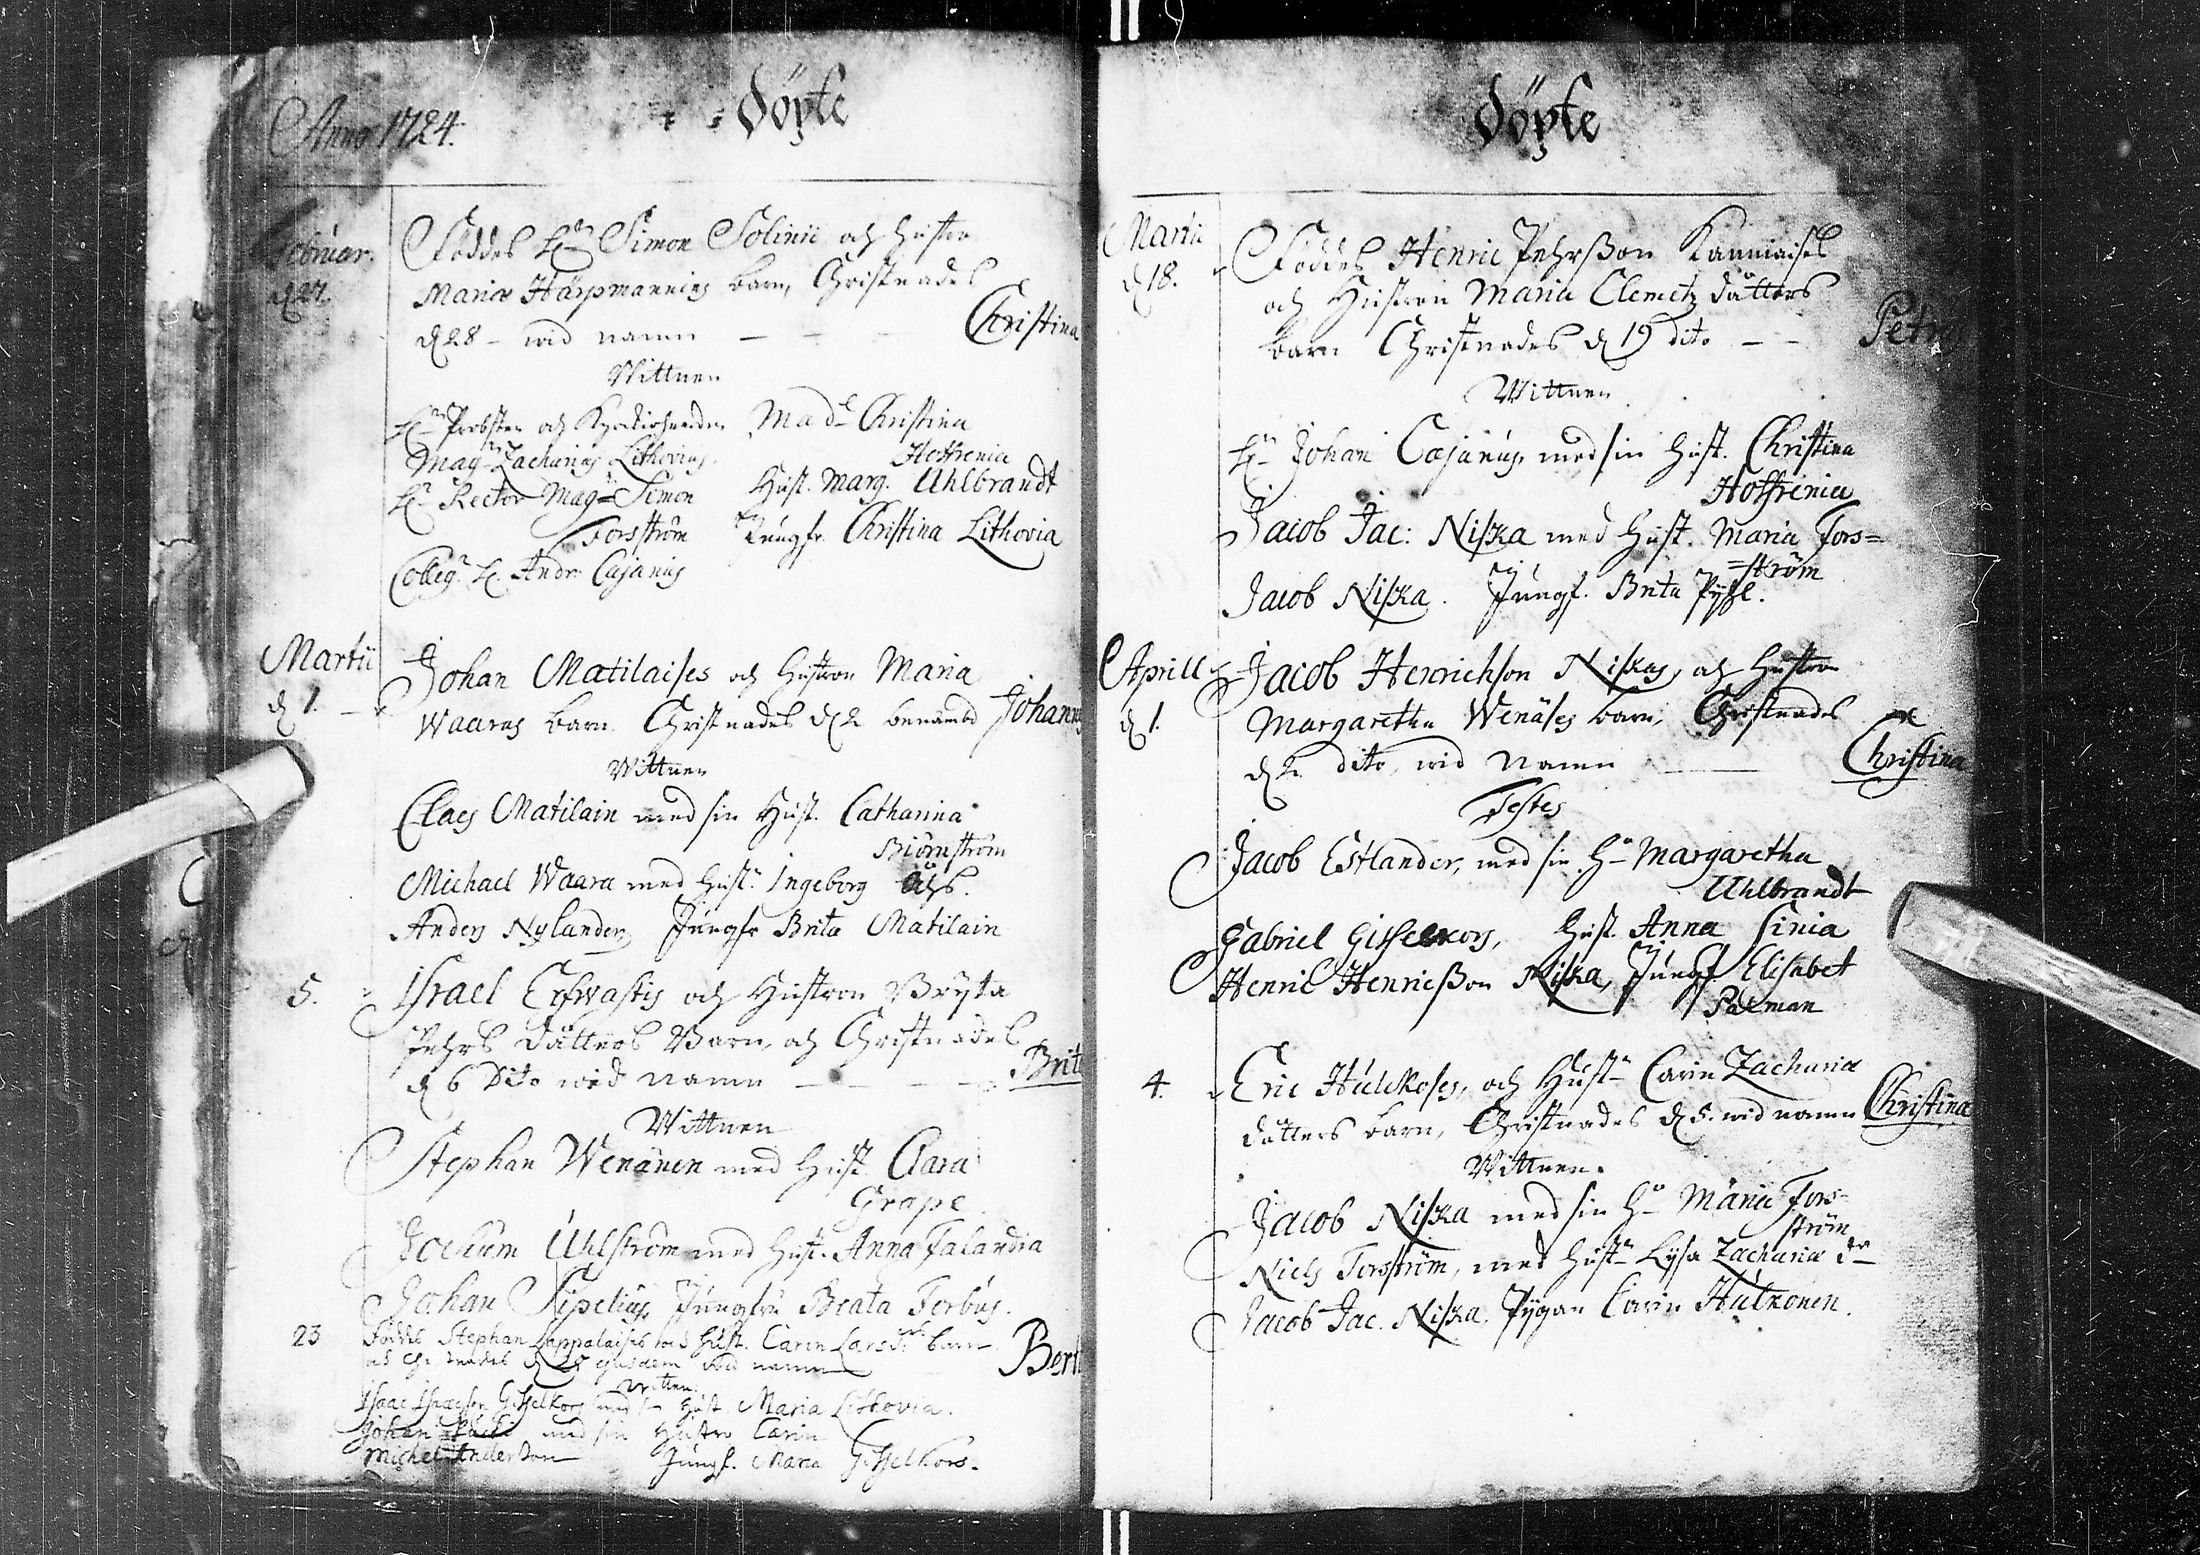 Anno 1724.
Döpte
Februar. d 27.
Föddes Hr Simon Solinii och hustru
Mariæ Härpmannies barn, Christnades
d 28 - wid namn - - - Christina
Wittnen
Hr Probsten och Kyrckioherden Mad. Christina
Mag. Zacharias Lithovius. Hoffrenia
Hr Rector Mag. Simon Hust. Marg. Uhlbrandt
Forsström Jungfr. Christina Lithovia
Colleg. H. Andr. Cajanus
Martii
d 1. Johan Matilaises och hustron Maria
Waaras barn Christnades d 2 benämbd Johannes
Wittnen
Claes Matilain med sin Hust. Catharina
Biörnström
Michael Waara med Hust. Ingeborg
Anders Nylander, Jungfr Brita Matilain
5. Israel Erfwastis och Hustron Bryta
Pehrs dåtters Barn, och Christnades
d 6 Dito wid namn - - - - Brita
Wittnen
Stephan Wenänen med Hust. Clara
Grape
Jochum Uhlström med Hust. Anna Falandria
Johan Sipelius, Jungfru Beata Forbus.
23 Föddes Stephan Lappalaises och Hust. Carin Lars dr barn
och Christnades d 25 ejusdem wid namn Ber
Wittnen
Isaac Isacson Gisselkors med sin Hust. Maria Lithovia.
Johan med sin Hustro Carin
Michel Anderson Jungf. Maria Gisselkors.
Döpte
Martii
d 18. Föddes Henric Pehrßon Kanniaises
och Hustron Maria Clemetz dåtters
barn Christnades d 19 dito - - Petrus
Wittnen
Hr Johan Cajanus, med sin Hust. Christina
Hoffrenia
Jacob Jac: Niska med Hust. Maria Fors=
=ström
Jacob Niska. Jungf. Brita Pyhl.
Aprill
d 1. Jacob Henrichson Niskas, och Hustron
Margaretha Wenäses barn, Christnades
d 2 dito, wid Namn - Christina
Testes
Jacob Estlander, med sin H. Margaretha
Uhlbrandt
Gabriel Gisselkors, Hust. Anna Sinia
Henric Henricßon Niska, Jungf Elisabet
Palman
4. Eric Hulckoses, och Hust. Carin Zachariæ
dåtters barn, Christnades d 5. wid namn Christina
Wittnen.
Jacob Niska med sin H. Maria Fors=
ström
Niels Forsström, med Hust. Lysa Zachariæ dr
Jacob Jac. Niska. Pygan Carin Hulkonen.